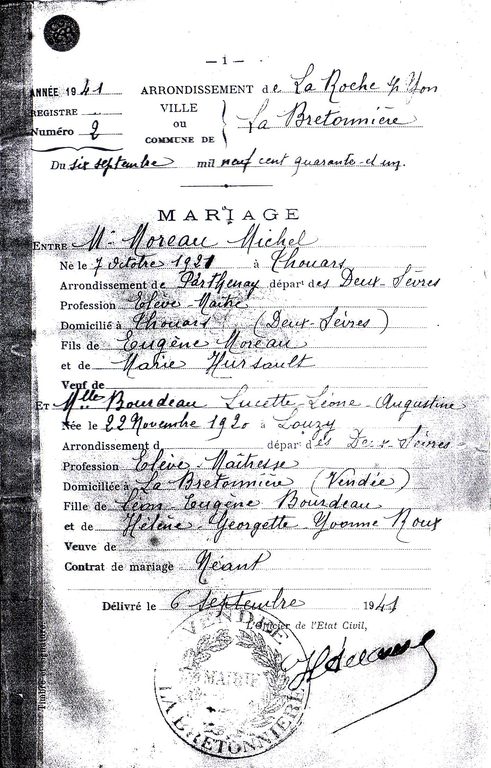 — 1 —
ANNÉE 1941 ARRONDISSEMENT de La Roche s/ Yon
REGISTRE VILLE
Numéro 2 ou La Bretonnière
COMMUNE DE
Du six septembre mil neuf cent quarante-et un
MARIAGE
ENTRE Mr Moreau Michel
Né le 7 Octobre 1921 à Thouars
Arrondissement de Parthenay départ des Deux-Sèvres
Profession Elève-Maître
Domicilié à Thouars (Deux-Sèvres)
Fils de Eugène Moreau
et de Marie Hursault
Veuf de
ET Mlle Bourdeau Lucette-Léone-Augustine
Née le 22 Novembre 1920 à Louzy
Arrondissement d départ des Deux Sèvres
Profession Elève-Maîtresse
Domiciliée à La Bretonnière (Vendée)
Fille de Léon-Eugène Bourdeau
et de Hélène-Georgette-Yvonne Roux
Veuve de
Contrat de mariage Néant
Délivré le 6 septembre 1941
L'Officier de l'Etat Civil,
VENDÉE
MAIRIE
LA BRETONNIÈRE